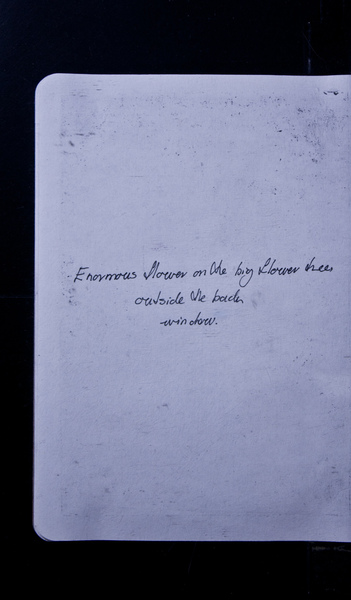 Enormous flower on the big flower tree
outside the back
window.